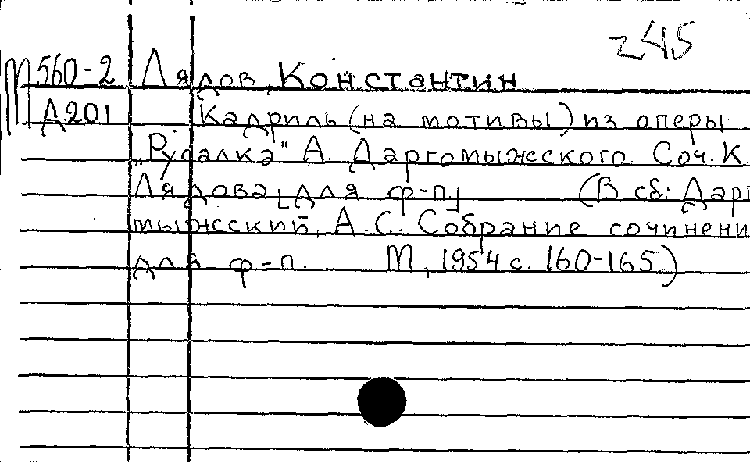 245
М560-2 Лядов, Константин
Д201 Кадриль (на мотивы) из оперы
„Русалка" А. Даргомыжского. Соч. К.
Лядова [для ф-п.] (В сб: Дарго
мыжский, А.С. Собрание сочинени
для ф-п. М., 1954 с. 160-165.)